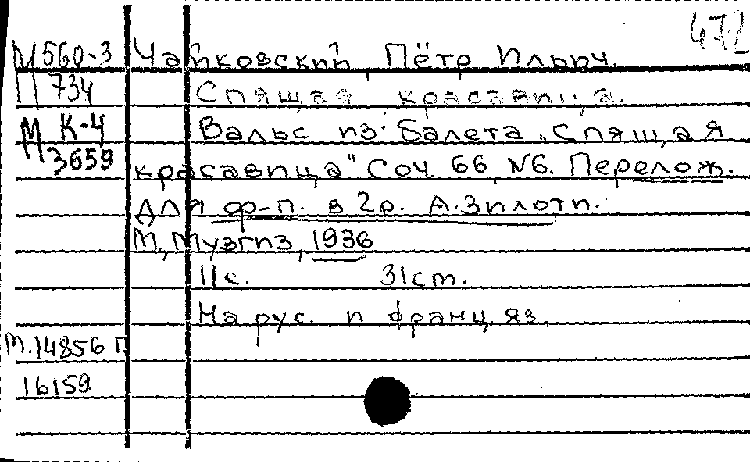 472
М 560-3 Чайковский, Пётр Ильич.
П 734 Спящая красавица.
М К-4 Вальс из балета „Спящая
П 3659 красавица" Соч. 66, №6. Перелож.
для ф-п. в 2р. А. Зилоти.
М., Музгиз, 1936
11с. 31см.
На рус. и франц. яз.
М.14856 г.
16159